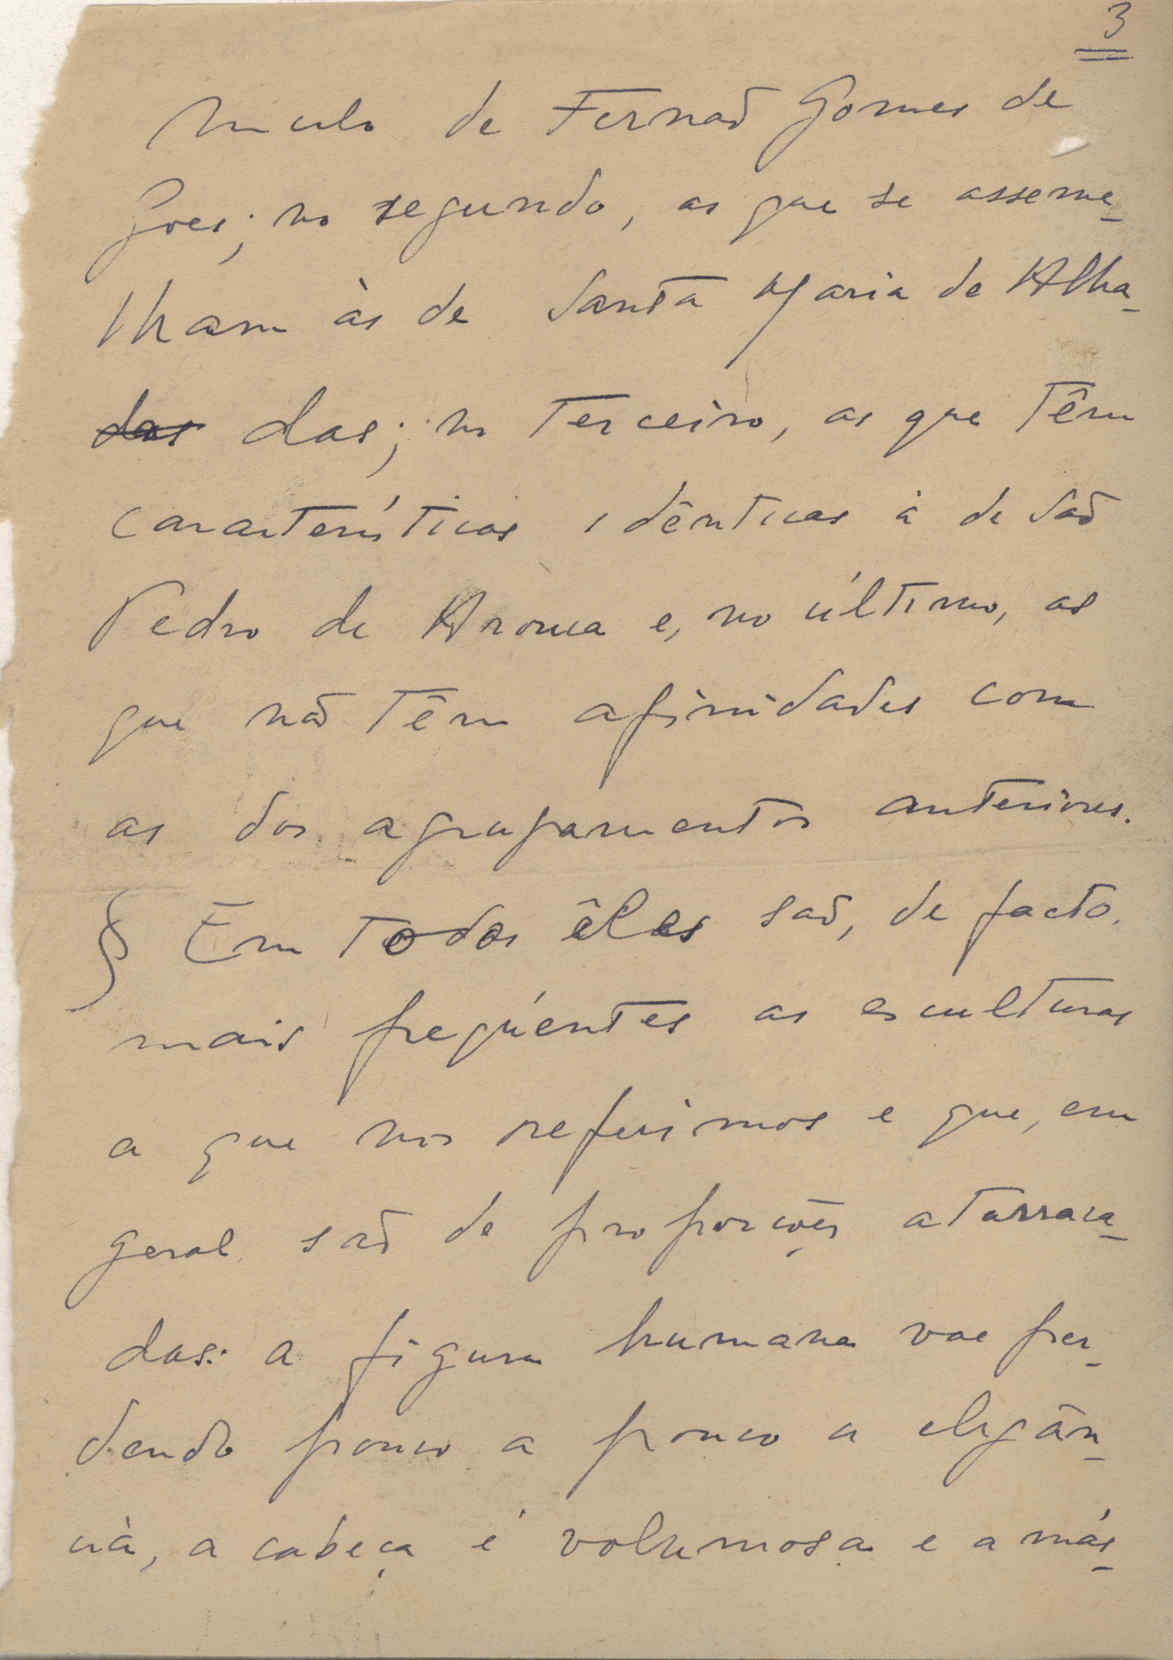 3
mulo de Fernão Gomes de
Goes; no segundo, as que se asseme-
lham às de Santa Maria de Alha-
das das; no terceiro, as que têm
características idênticas à de São
Pedro de Arouca e, no último, as
que não têm afinidades com
as dos agrupamentos anteriores.
§ Em todos êles são, de facto,
mais freqüentes as esculturas
a que nos referimos e que, em
geral são de proporções atarraca-
das: a figura humana vae per-
dendo pouco a pouco a elegân-
cia, a cabeça é volumosa e a más-